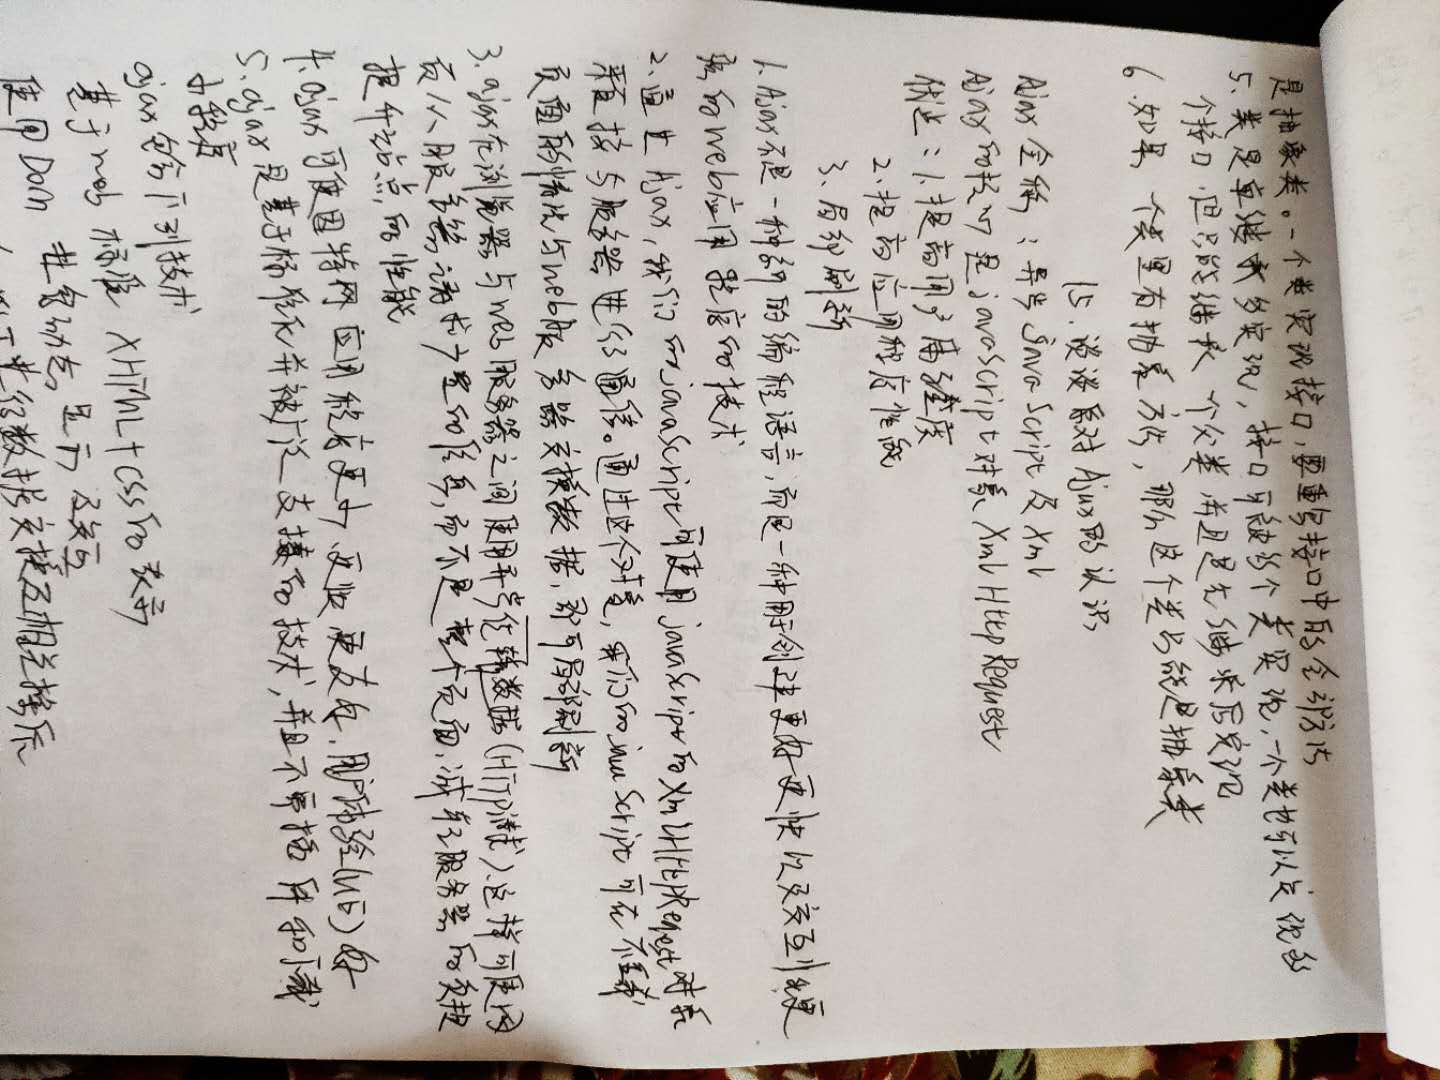 是抽象类。一个类实现接口，要重写接口中的全部方法
5. 类是单继承多实现，接口可被多个类实现，一个类也可以实现多
个接口，但只能继承一个父类并且是先继承后实现
6. 如果一个类里有抽象方法，那么这个类只能是抽象类
15. 谈谈你对Ajax的认识
Ajax全称：异步JavaScript及Xml
Ajax的核心是javaScript对象XmlHttpRequest
优送：1. 提高用户体验度
2. 提高应用程序性能
3. 局部刷新
1. Ajax不是一种新的编程语言，而是一种用于创建更好更快以及交互性更
强的web应用程序的技术
2. 通过Ajax，我们的javaScript可使用javaScript的XmlHttpRequest对象
来直接与服务器进行通信。通过这个对象，我们的javaScript可在不重载
页面的情况与web服务器交换数据，即可局部刷新
3. ajax在浏览器与web服务器之间使用异步传输数据(HTTP请求)这样可使网
页从服务器请求少量的信息，而不是整个页面，减轻服务器的负担
提升站点的性能
4. ajax可使因特网应用程序更小更快更友好，用户体验(UE)好
5. ajax是基于标准化并被广泛支持的技术，并且不需插件和下载
小程序
ajax包含下列技术
基于web标准 XHTML+CSS的表示
使用DOM 进行动态显示及交互
数据交换及相关操作